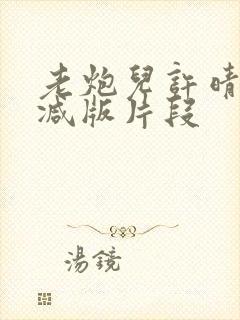 老炮兒許晴
減版片段
湯鏡